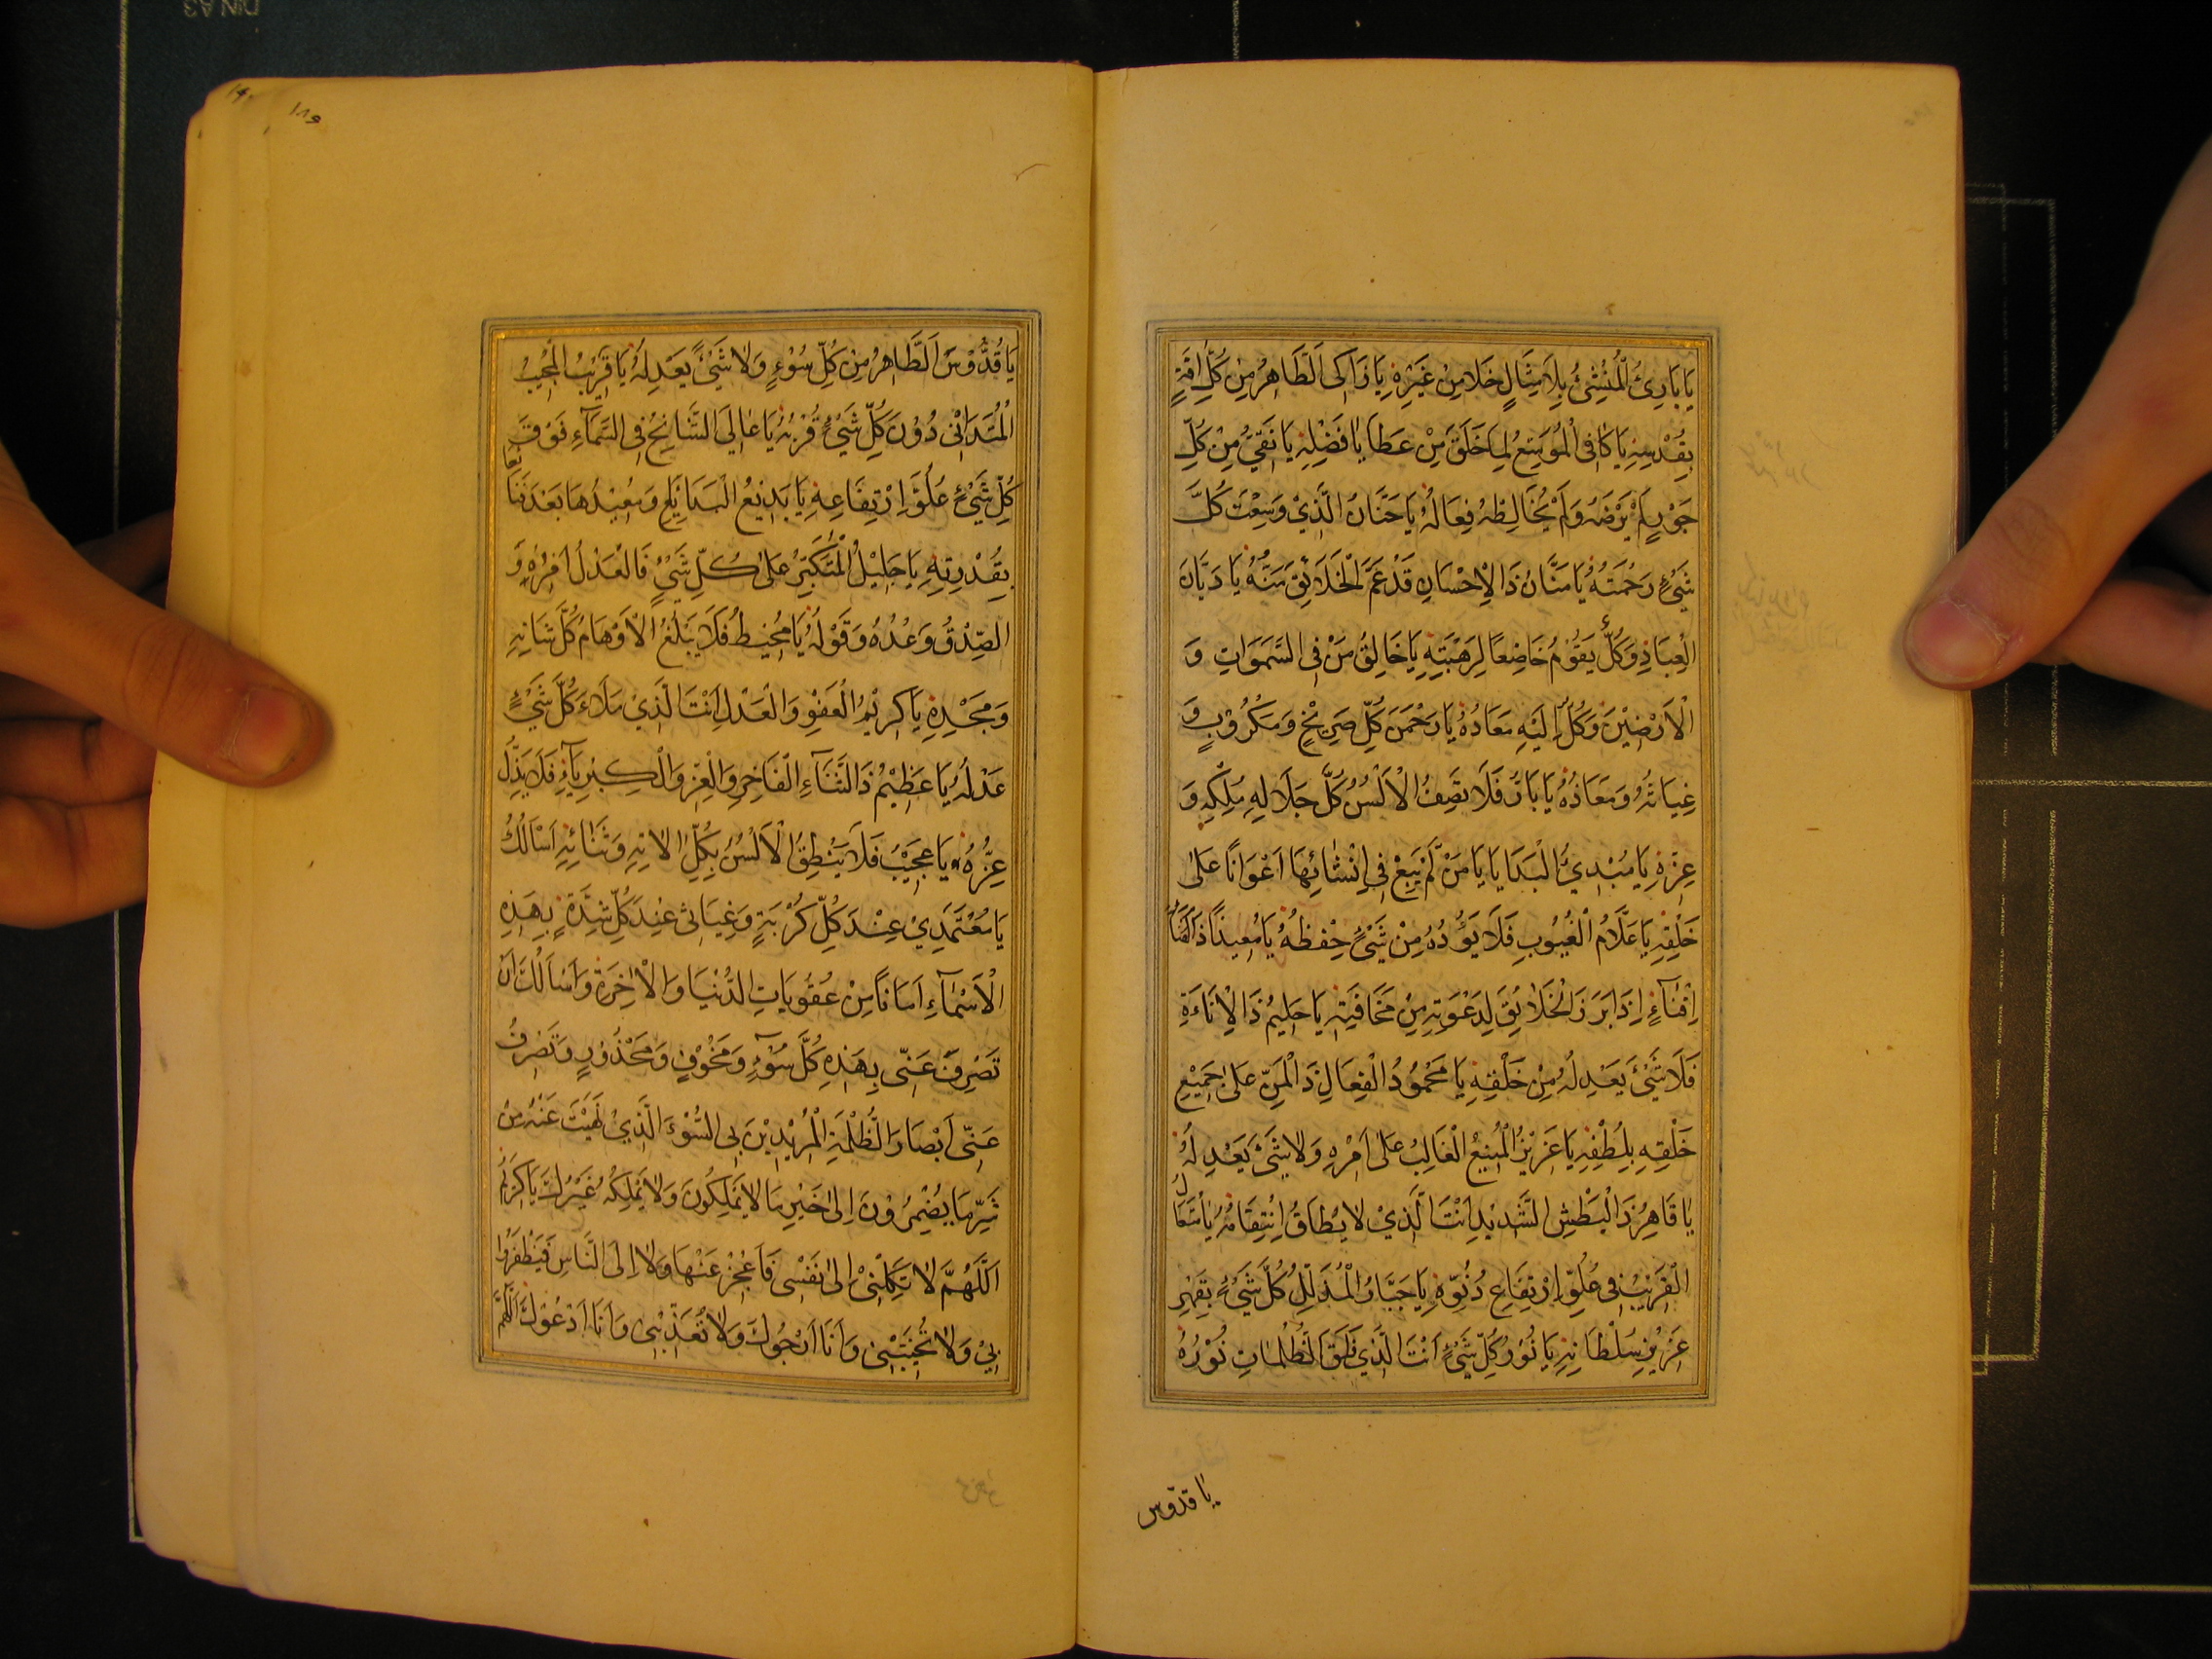 يَا بَارِئُ الْمُنْشِئُ بِلَا مِثَالٍ خَلَا مِنْ غَيْرِهِ يَا زَاكِى الطَّاهِرُ مِنْ كُلِّ اٰفَةٍ
بِقُدْسِهِ يَا كَافِى الْمُوَسِّعُ لِمَا خَلَقَ مِنْ عَطَايَا فَضْلِهِ يَا نَقِيُّ مِنْ كُلِّ
جَوْرٍ لَمْ يَرْضَهُ وَلَمْ يُخَالِطْهُ فِعَالُهُ يَا حَنَّانُ الَّذِيْ وَسِعْتَ كُلَّ
شَيْءٍ رَحْمَتُهُ يَا مَنَّانُ ذَا الْاِحْسَانِ قَدْ عَمَّ الْخَلَائِقَ مَنُّهُ يَا دَيَّانَ
الْعِبَادِ وَكُلٌّ يَقُوْمُ خَاضِعًا لِرَهْبَتِهِ يَا خَالِقُ مَنْ فِى السَّمَوَاتِ وَ
الْاَرْضِيْنَ وَكُلٌّ اِلَيْهِ مَعَادُهُ يَا رَحْمٰنَ كُلِّ صَرِيْخٍ وَمَكْرُوْبٍ وَ
غِيَاثُهُ وَمَعَاذُهُ يَا بَارُّ فَلَا تَصِفُ الْاَلْسُنُ كُلَّ جَلَالِهِ مُلْكِهِ وَ
عِزِّهِ يَا مُبْدِئُ الْبَدَايَا يَا مَنْ لَمْ يَبْغِ فِى اِنْشَائِهَا اَعْوَانًا عَلٰى
خَلْقِهِ يَا عَلَّامُ الْغُيُوبِ فَلَا يَؤُدُهُ مِنْ شَيْءٍ حِفْظُهُ يَا مُعِيْدًا
اِفْنَاءٍ اِذَا بَرَزَ الْخَلَائِقَ لِدَعْوَتِهِ مِنْ مَخَافَتِهِ يَا حَلِيْمُ ذَا الْاِنَاءَةِ
فَلَا شَيْءَ يَعْدِلُهُ مِنْ خَلْقِهِ يَا مَحْمُوْدُ الْفِعَالِ ذَا الْمَنِّ عَلٰى جَمِيْعِ
خَلْقِهِ بِلُطْفِهِ يَا عَزِيْزُ الْمُنِيْعُ الْغَالِبُ عَلٰى اَمْرِهِ وَلَا شَيْءَ يَعْدِلُهُ
يَا قَاهِرُ ذَا الْبَطْشِ الشَّدِيْدِ اَنْتَ الَّذِيْ لَا يُطَاقُ اِنْتِقَامُهُ يَا مُتَعَالُ
الْقَرِيْبُ فِى عُلُوِّ اِرْتِفَاعِ دُنُوِّهِ يَا جَبَّارُ الْمُذَلِّلُ كُلَّ شَيْءٍ بِقَهْرِ
عَزِيْزِ سُلْطَانِهِ يَا نُوْرُ كُلِّ شَيْءٍ اَنْتَ الَّذِيْ فَلَقَ الظُّلُمَاتِ نُوْرُهُ
يا قدّوس
١٨٩
يَا قُدُّوْسُ الطَّاهِرُ مِنْ كُلِّ سُوْءٍ وَلَا شَيْءَ يَعْدِلُهُ يَا قَرِيْبُ الْمُجِيْبُ
الْمُتَدَانِىْ دُوْنَ كُلِّ شَيْءٍ قُرْبُهُ يَا عَالِيَ الشَّامِخُ فِى السَّمَاءِ فَوْقَ
كُلِّ شَيْءٍ عُلُوُّ اِرْتِفَاعِهِ يَا بَدِيْعُ الْبَدَائِعِ وَمُعِيْدُهَا بَعْدَ فَنَائِهَا
بِقُدْرِتِهِ يَا جَلِيْلُ الْمُتَكَبِّرُ عَلٰى كُلِّ شَيْءٍ فَالْعَدْلُ اَمْرُهُ وَ
الصِّدْقُ وَعْدُهُ وَقَوْلُهُ يَا مُحِيْطُ فَلَا يَبْلُغُ الْاَوْهَامُ كُلَّ شَانِهِ
وَمَجْدِهِ يَا كَرِيْمُ الْعَفْوِ وَالْعَدْلِ اَنْتَ الَّذِيْ مَلَاءَ كُلَّ شَيْءٍ
عَدْلُهُ يَا عَظِيْمُ ذَا الثَّنَاءِ الْفَاخِرِ وَالْعِزِّ وَالْكِبْرِيَاءِ فَلَا يَذِلُّ
عِزُّهُ يَا عَجِيْبُ فَلَا يَنْطِقُ الْاَلْسُنُ بِكُلِّ اٰلَائِهِ وَثَنَائِهِ اَسْأَلُكَ
يَا مُعْتَمَدِيْ عِنْدَ كُلِّ كُرْبَةٍ وَغِيَاثِى عِنْدَ كُلِّ شِدَّةٍ بِهَذِهِ
الْاَسْمَاءِ اَمَانًا مِنْ عُقُوبَاتِ الدُّنْيَا وَالْاٰخِرَةِ وَاَسْاَلُكَ اَنْ
تَصْرِفَ عَنِّى بِهَذِهِ كُلَّ سُوْءٍ وَمَخُوْفٍ وَمَحْذُوْرٍ وَتَصْرِفُ
عَنِّى اَبْصَارَ الظَّلَمَةِ الْمُرِيْدِيْنَ بِى السُّوْءَ الَّذِيْ نَهَيْتَ عَنْهُ مِنْ
شَرِّ مَا يُضْمِرُوْنَ اِلٰى خَيْرِ مَا لَا يَمْلِكُوْنَ وَلَا يَمْلِكُهُ غَيْرُكَ يَا كَرِيْمُ
اَللّٰهُمَّ لَا تَكِلْنِىْ اِلٰى نَفْسِى فَاَعْجُزُ عَنْهَا وَلَا اِلَى النَّاسِ فَيَظْفَرُوْا
بِيْ وَلَا تُخَيِّبْنِى وَاَنَا اَرْجُوْكَ وَلَا تُعَذِّبْنِى وَاَنَا اَدْعُوْكَ اَللّٰهُمَّ